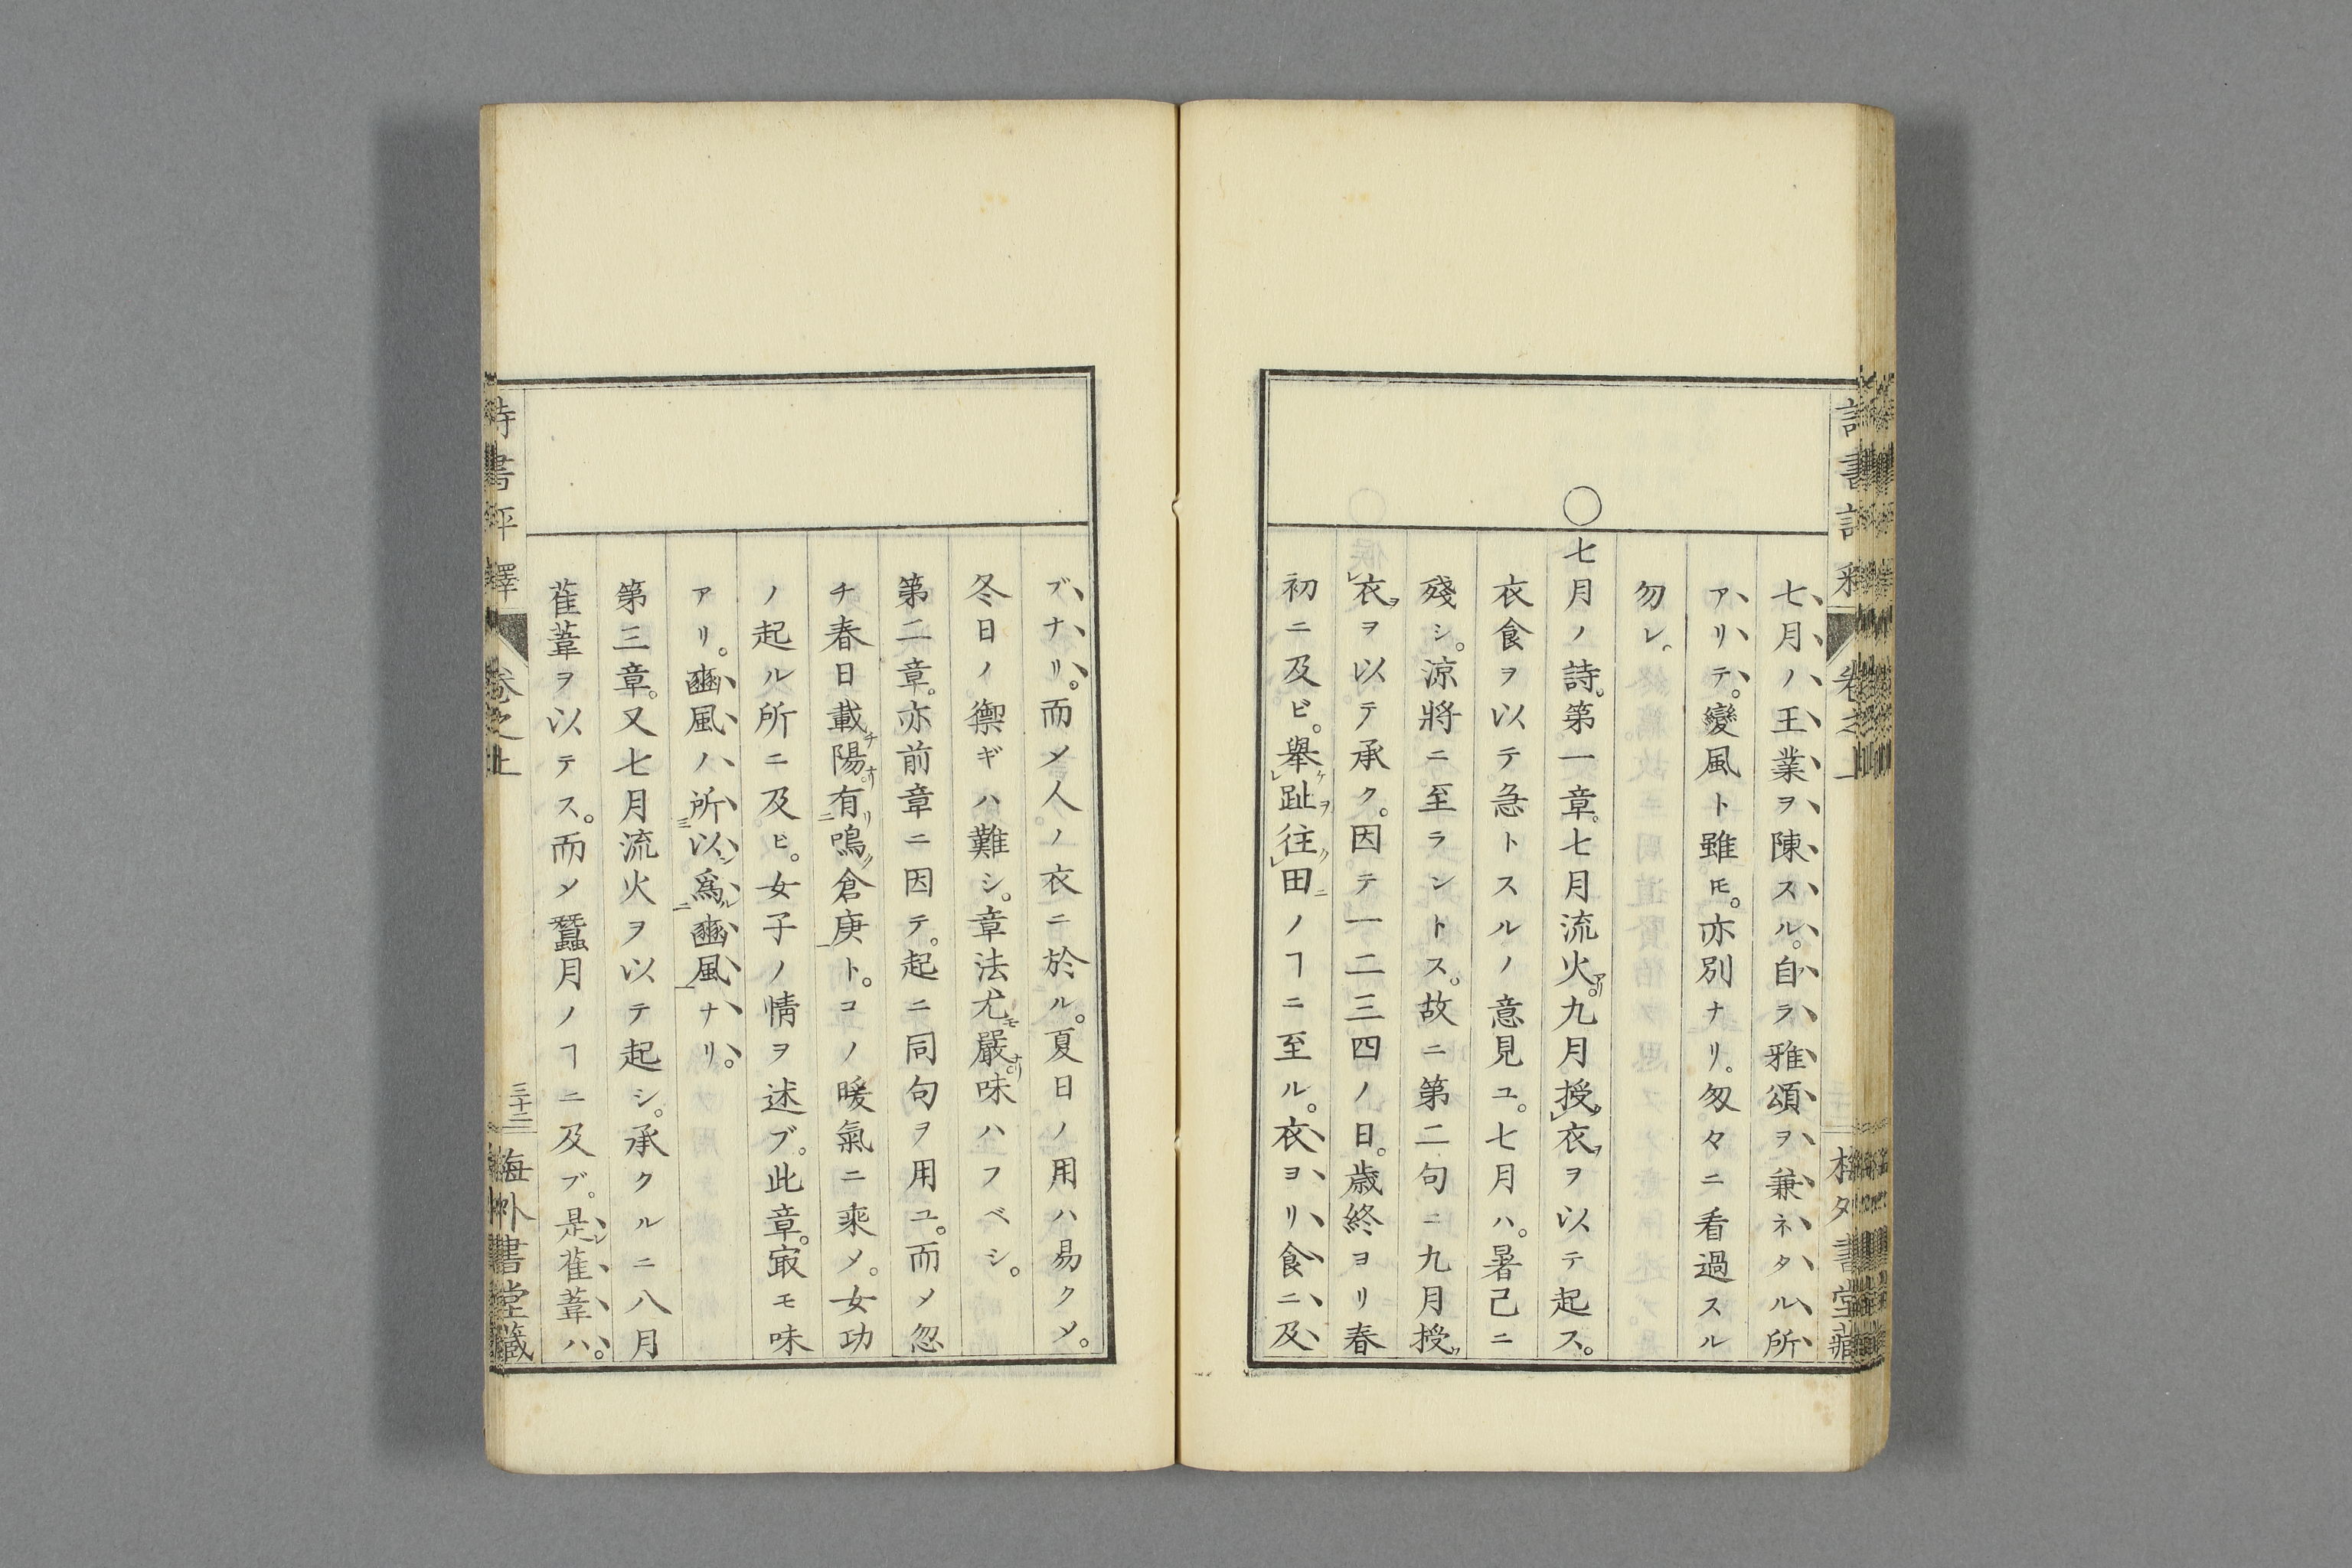 七月ノ王業ヲ陳スル。自ラ雅頌ヲ兼ネタル所
アリテ。變風ト雖𪜈。亦別ナリ。匆々ニ看過スル
勿レ。
○七月ノ詩。第一章。七月流火アリ。九月授レ衣ヲ以テ起ス。
衣食ヲ以テ急トスルノ意見ユ。七月ハ。暑己ニ
殘シ。涼將ニ至ラントス。故ニ第二句ニ九月授
レ衣ヲヲ以テ承ク。因テ一二三四ノ日。歳終ヨリ春
初ニ及ビ。擧レ趾ヲ往レ田ニノヿニ至ル。衣ヨリ食ニ及
ブナリ。而〆人ノ衣ニ於ル。夏日ノ用ハ易ク〆。
冬日ノ禦ギハ難シ。章法尤モ嚴ナリ。味ハフベシ。
第二章。亦前章ニ因テ。起ニ同句ヲ用ユ。而〆忽
チ春日載チ陽ナリ。有リ二鳴ク倉庚一ト。コノ暖氣ニ乘〆。女功
ノ起ル所ニ及ビ。女子ノ情ヲ述ブ。此章。㝡モ味
アリ。豳風ノ所三以爲二豳風一ナリ。
第三章。又七月流火ヲ以テ起シ。承クルニ八月
萑葦ヲ以テス。而〆蠶月ノヿニ及ブ。是レ萑葦ハ。
詩書評釋 卷之上 三十二 梅外書堂藏